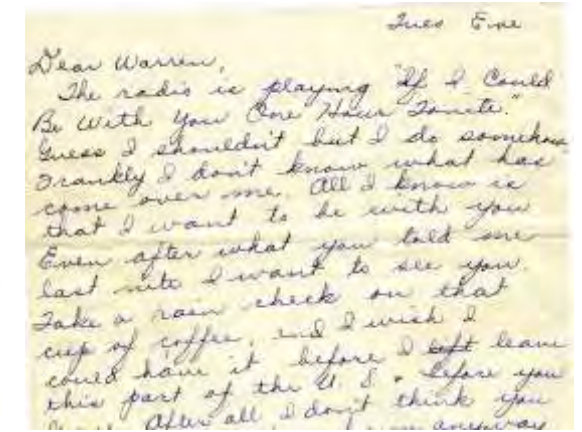 Tues Eve
Dear Warren,
The radio is playing "If I Could
Be With You One Hour Tonite."
Guess I shouldn't but I do somehow
Frankly I don't know what has
come over me. All I know is
that I want to be with you
Even after what you told me
last nite I want to see you.
Take a rain check on that
cup of coffee, and I wish I
could have it before I left leave
this part of the U. S. Before you
After all I don't think you
anyway